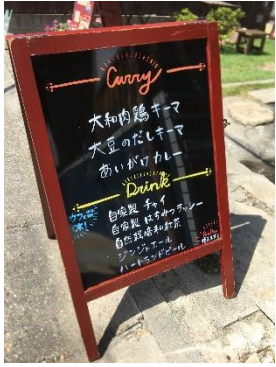 Curry
大和肉鶏キーマ
大豆のだしキーマ
あいがけカレー
Drink
自家製 チャイ
自家製 はちみつラッシー
自然栽培和紅茶
ジンジャエール
ハートランドビール